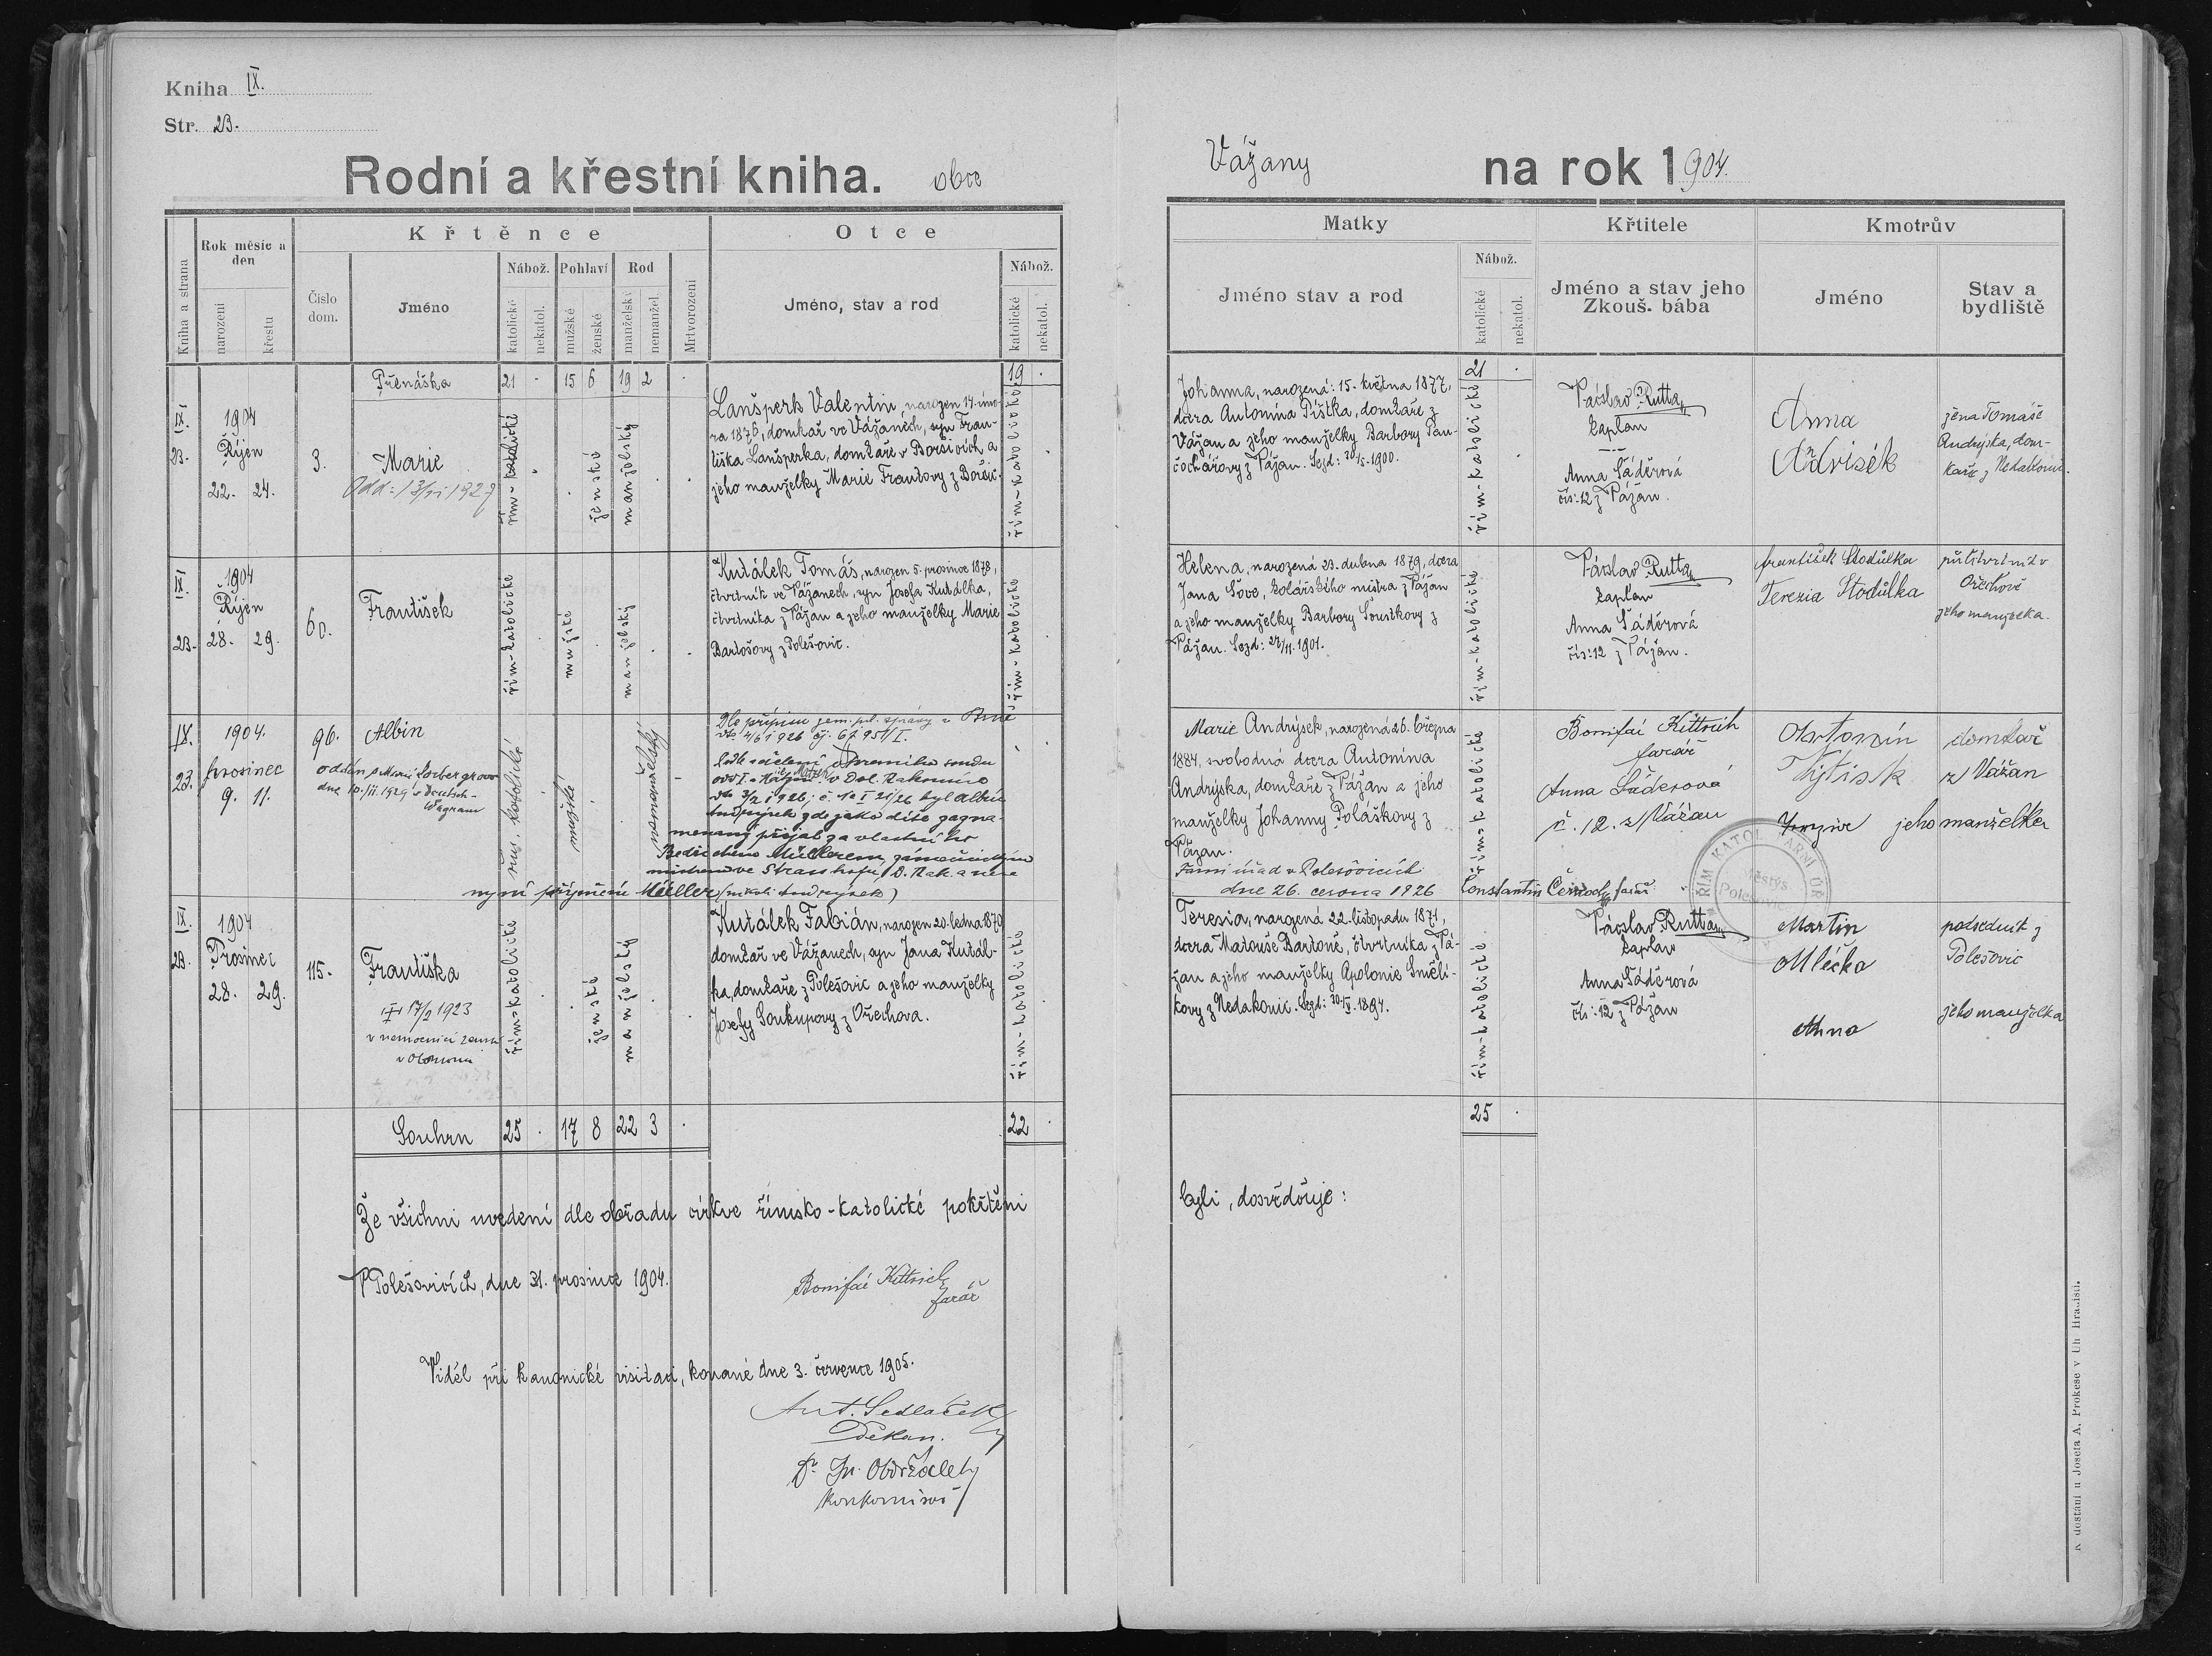 Kniha IX.
Str. 23.
Rodní a křestní kniha. obce
Vážany na rok 1904.
Kniha a strana
Rok měsíc a den
narození
křestu
Číslo dom.
Křtěnce
Jméno
Nábož.
katolické
nekatol.
Pohlaví
mužské
ženské
Rod
manželský
nemanžel.
Mrtvorození
Otce
Jméno, stav a rod
Nábož.
katolické
nekatol.
Matky
Jméno stav a rod
Nábož.
katolické
nekatol.
Křtitele
Jméno a stav jeho
Zkouš. bába
Kmotrův
Jméno
Stav a bydliště
Přenáška 21 . 15 6 19 2 . 19 .
21 .
IX.
23.
1904
Říjen
22. 24.
3.
Marie
řím-katolické
ženské
manželský
Lanšperk Valentin, narozen 14. úno-
ra 1876, domkař ve Vážanech, syn Fran-
tiška Lanšperka, domkaře v Boršicích a
jeho manželky Marie Frantovy z Boršic.
řím-katolické
Johanna, narozená: 15. května 1877,
dcera Antonína Pištka, domkaře z
Vážan a jeho manželky Barbory
z Vážan. Sezd: 30/5. 1900.
řím-katolické
Václav Rutta
kaplan
Anna Šáděrová
čís: 12 z Vážan.
Anna
žena Tomáše
Andrýska, dom-
kaře z Nedakonic.
IX.
23.
1904
Říjen
28. 29.
60.
František
řím-katolické
mužské
manželský
Kutálek Tomáš, narozen 5. prosince 1878,
čtvrtník ve Vážanech, syn Josefa Kutálka,
čtvrtníka z Vážan a jeho manželky Marie
Bartošovy z Polešovic.
řím-katolické
Helena, narozená 23. dubna 1879, dcera
Jana Šove, kolářského mistra z Vážan
a jeho manželky Barbory Soustkovy z
Vážan. Sezd: 27/11. 1901.
řím-katolické
Václav Rutta
kaplan
Anna Šáděrová
čís: 12 z Vážan.
František Stodůlka
Terezia Stodůlka
půlčtvrtník v
Ořechově
jeho manželka.
IX.
23.
1904.
prosinec
9. 11.
96.
Albin
řím. katolické
mužské
nemanželský
Dle přípisu zem. pol. správy v Brně
menaný přijat za vlastního
Bedřichem Müllerem
nyní příjmení Müller (nikoli Andrýsek)
Marie Andrýsek, narozená 26. března
1884, svobodná dcera Antonína
Andrýska, domkaře z Vážan a jeho
manželky Johanny Poláškovy z
Vážan.
Farní úřad v Polešovicích
dne 26. června 1926
řím-katolické
Bonifác Kittrich
farář
Anna Šáderová
č. 12. z Vážan
Antonín
jeho manželka
domkař
z Vážan
IX.
23.
1904
Prosinec
28. 29.
115.
Františka
17/2 1923
v nemocnici zemské
v Olomouci
řím-katolické
ženské
manželský
Kutálek Fabián, narozen 20. ledna 1870
domkař ve Vážanech, syn Jana Kutál-
ka, domkaře z Polešovic a jeho manželky
Josefy Soukupovy z Ořechova.
řím-katolické
Teresia, narozená 22. listopadu 1871,
dcera Matouše Bartoně, čtvrtníka z Vá-
žan a jeho manželky Apolonie Smělí-
kovy z Nedakonic.
řím-katolické
Václav Rutta
kaplan
Anna Šáděrová
čís: 12 z Vážan
Martin
Mlečka
Anna
podsedník z
Polešovic
jeho manželka
Souhrn 25 . 17 8 22 3 . 22 .
25 .
Že všichni uvedení dle obřadu církve římsko-katolické pokřtěni
byli, dosvědčuje:
V Polešovicích, dne 31. prosince 1904.
Bonifác Kittrich
farář
Viděl při kanonické visitaci, konané dne 3. července 1905.
Ant. Sedláček
Děkan.
K dostání u Josefa A. Prokese v Uh. Hradišti.